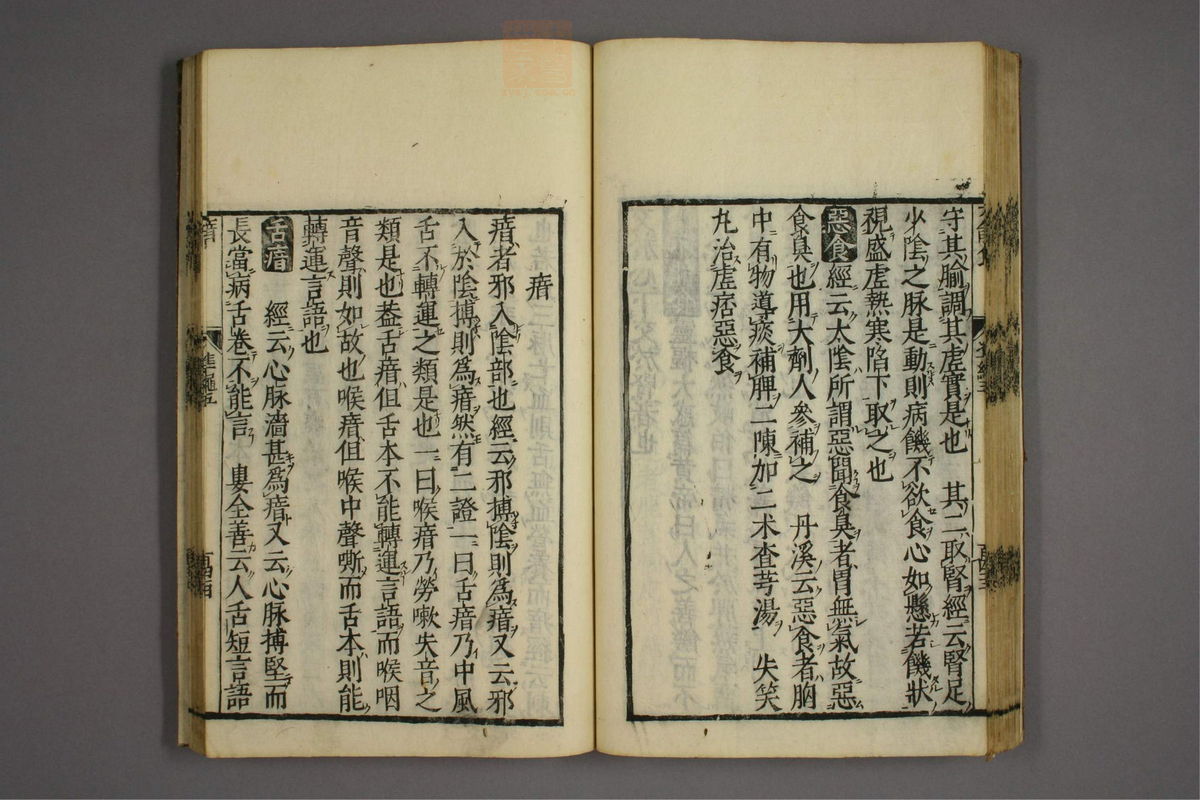 守其腧調其虛實是也　其二取腎經云腎足
少陰之脉是動則病饑不欲食心如懸若饑狀
視盛虛熱寒陷下取之也
惡食經云太陰所謂惡聞食臭者胃無氣故惡
食臭也用大劑人參補之　丹溪云惡食者胸
中有物導痰補脾二陳加二术查芎湯　失笑
九治虛痞惡食
瘖
瘖者邪入陰部也經云邪搏陰則爲瘖又云邪
入於陰搏則爲瘖然有二證一曰舌瘖乃中風
舌不轉運之類是也一曰喉瘖乃勞嗽失音之
類是也葢舌瘖但舌本不能轉運言語而喉咽
音聲則如故也喉瘖但喉中聲嘶而舌本則能
轉運言語也
舌瘖　經云心脉濇甚爲瘖又云心脉搏堅而
長當病舌卷不能言　婁全善云人舌短言語
瘖